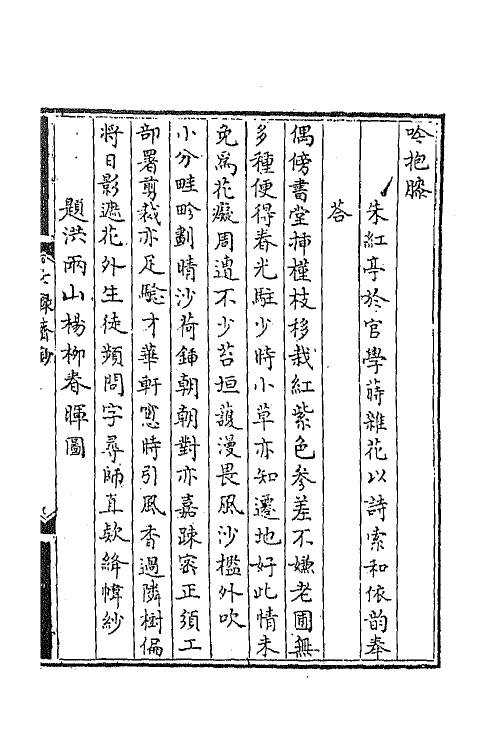 吟抱膝
朱紅亭於官學蒔雜花以詩索和依韵奉
答
偶傍書堂揷槿枝移栽紅紫色參差不嫌老圃無
多種便得春光駐少時小草亦知遷地好此情未
免爲花癡周遭不少苔垣護漫畏風沙檻外吹
小分畦畛劃晴沙荷鍤朝朝對亦嘉疎密正須工
部署剪裁亦足驗才華軒窓時引風香過隣樹偏
將日影遮花外生徒頻問字尋師直欵絳幃紗
題洪雨山楊柳春暉圖